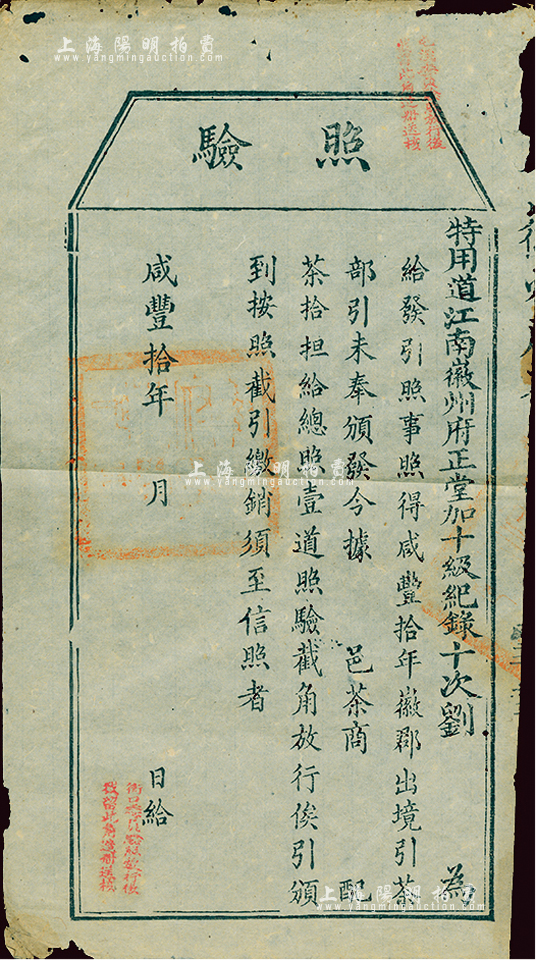 上海陽明拍賣
www.yangmingauction.com
驗照
特用道江南徽州府正堂加十級紀錄十次劉 為
給發引照事照得咸豐拾年徽郡出境引茶
部引未奉頒發今據 邑茶商 配
茶拾担給總照壹道照驗截角放行俟引頒
到按照截引繳銷須至信照者
咸豐拾年 月 日給
上海陽明拍賣
www.yangmingauction.com
驗放行後
截留此角造冊送核
上海陽明拍賣
www.yangmingauction.com